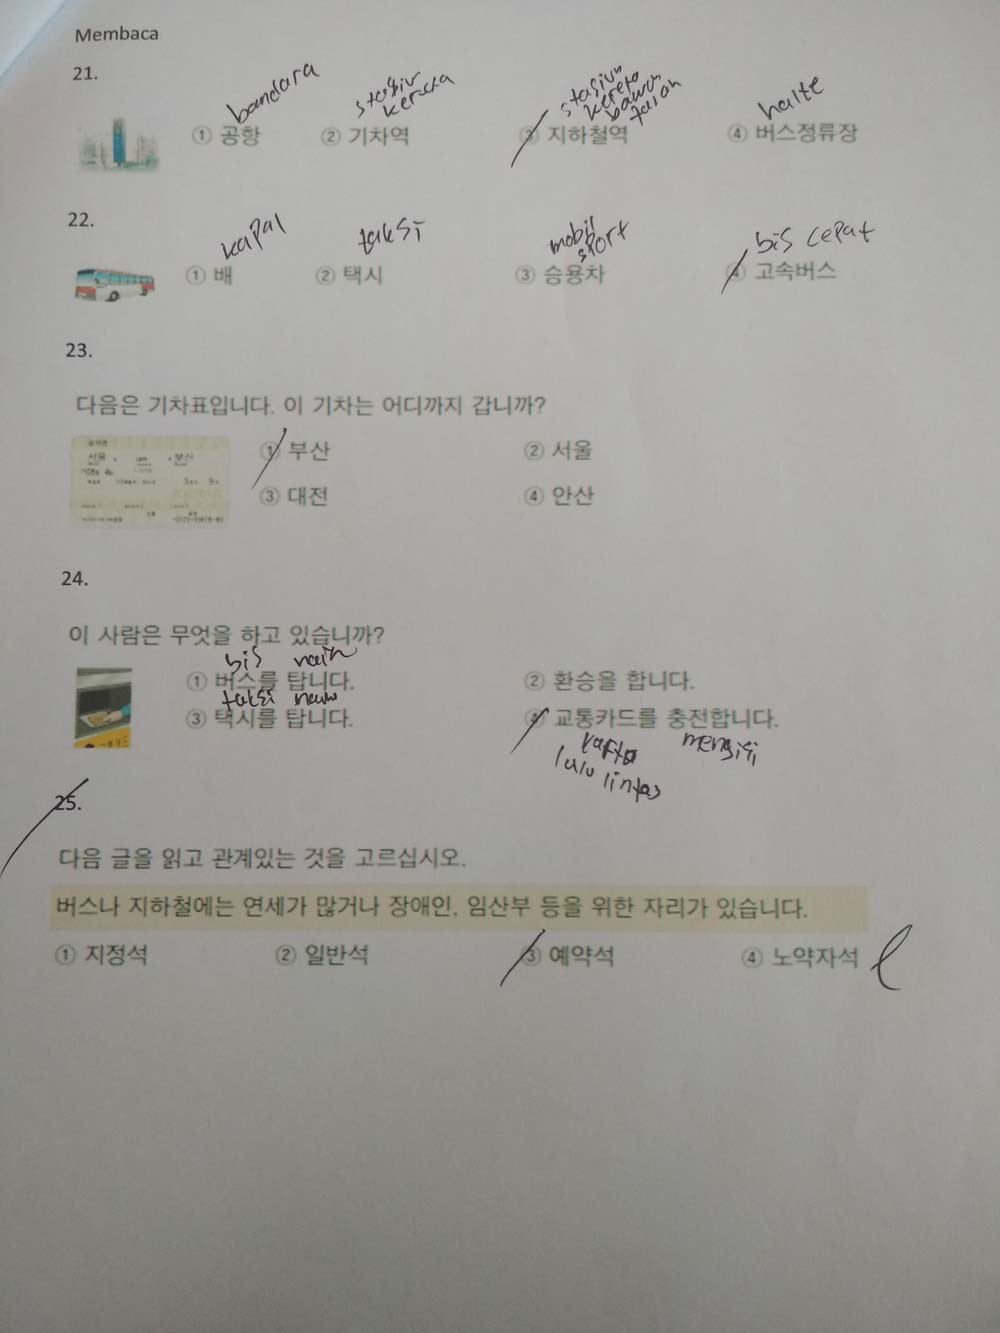 Membaca
21.
bandara
stasiun kereta
stasiun kereta bawah tanah
halte
① 공항 ② 기차역 ③ 지하철역 ④ 버스정류장
22.
kapal taksi mobil sport bis cepat
① 배 ② 택시 ③ 승용차 ④ 고속버스
23.
다음은 기차표입니다. 이 기차는 어디까지 갑니까?
서울 부산
① 부산 ② 서울
③ 대전 ④ 안산
24.
이 사람은 무엇을 하고 있습니까?
bis naik
① 버스를 탑니다. ② 환승을 합니다.
taksi
③ 택시를 탑니다. ④ 교통카드를 충전합니다.
kartu mengisi
lalu lintas
25.
다음 글을 읽고 관계있는 것을 고르십시오.
버스나 지하철에는 연세가 많거나 장애인, 임산부 등을 위한 자리가 있습니다.
① 지정석 ② 일반석 ③ 예약석 ④ 노약자석